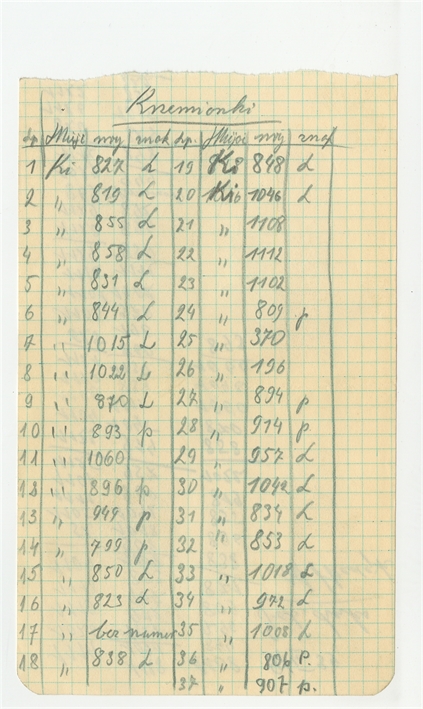 Krzemionki
dp. Miejsc nry znak dp. Miejsc nry znak
1 Ki 827 L 19 Ki 848 L
2 " 819 L 20 Ki 1046 L
3 " 855 L 21 " 1108
4 " 858 L 22 " 1112
5 " 831 L 23 " 1102
6 " 844 L 24 " 809 p
7 " 1015 L 25 " 370
8 " 1022 L 26 " 196
9 " 870 L 27 " 894 p
10 " 893 p 28 " 914 p.
11 " 1060 29 " 957 L
12 " 896 p 30 " 1042 L
13 " 949 p 31 " 834 L
14 " 799 p 32 " 853 L
15 " 850 L 33 " 1018 L
16 " 823 L 34 " 972 L
17 " bez numer 35 " 1008 L
18 " 838 L 36 " 806 p.
37 " 907 p.